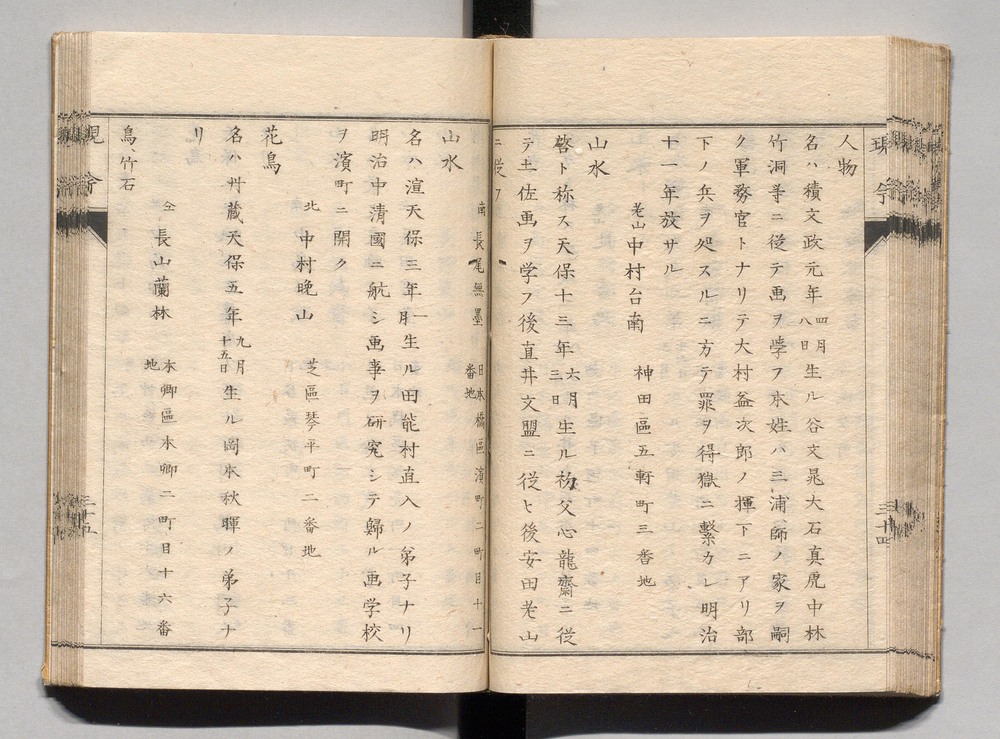 現今
三十四
人物
名ハ積文政元年四月八日生ル谷文晁大石真虎中林
竹洞等ニ従テ画ヲ学フ本姓ハ三浦師ノ家ヲ嗣
ク軍務官トナリテ大村益次郎ノ揮下ニアリ部
下ノ兵ヲ処スルニ方テ罪ヲ得獄ニ繋カレ明治
十一年放サル
老山中村台南 神田區五軒町三番地
山水
啓ト称ス天保十三年六月三日生ル初父心龍齋ニ従
テ土佐画ヲ学フ後直井文盟ニ従ヒ後安田老山
ニ従フ
南長尾無墨 日本橋區濱町二町目十一番地
山水
名ハ渲天保三年一月生ル田能村直入ノ弟子ナリ
明治中清國ニ航シ画事ヲ研究シテ歸ル画学校
ヲ濱町ニ開ク
北中村晩山 芝區琴平町二番地
花鳥
名ハ艸蔵天保五年九月十五日生ル岡本秋暉ノ弟子ナ
リ
仝長山蘭林 本郷區本郷二町目十六番地
鳥、竹石
現今
三十五